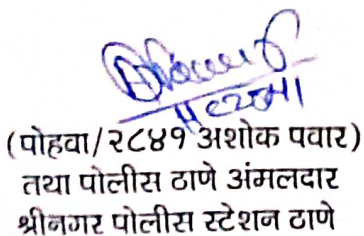 (पोहवा/२८४१ अशोक पवार)
तथा पोलीस ठाणे अंमलदार
श्रीनगर पोलीस स्टेशन ठाणे